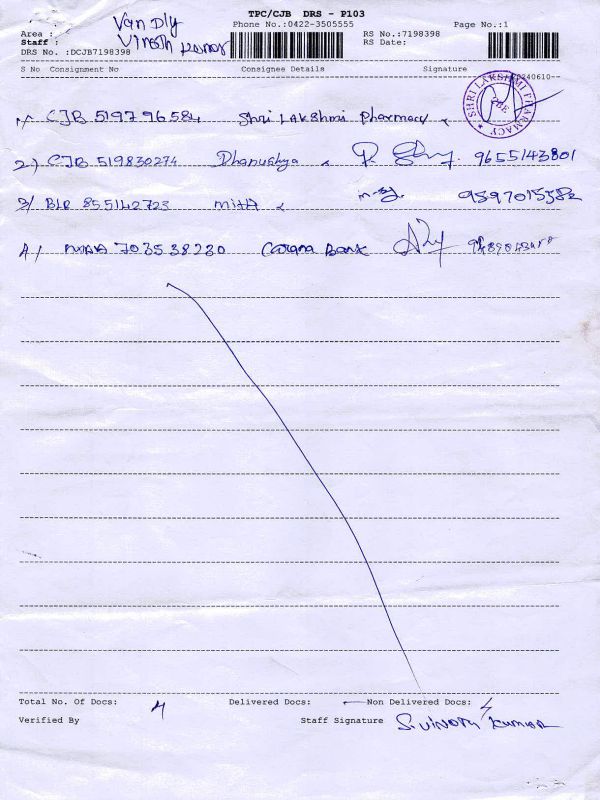 TPC/CJB DRS - P103
Area : Van Dly Phone No.:0422-3505555 Page No.:1
Staff : Vinoth Kumar RS No.:7198398
DRS No.:DCJB7198398 RS Date:
S No Consignment No Consignee Details Signature
SHRI LAKSHMI PHARMACY
1) CJB 519796584 Shri Lakshmi Pharmacy
2) CJB 519830274 Dhanushya 9655143801
3) BLR 855142723 MITA 9597015582
4) 703538230 Carana Bank
Total No. Of Docs: 4 Delivered Docs: Non Delivered Docs:
Verified By Staff Signature S. Vinoth Kumar